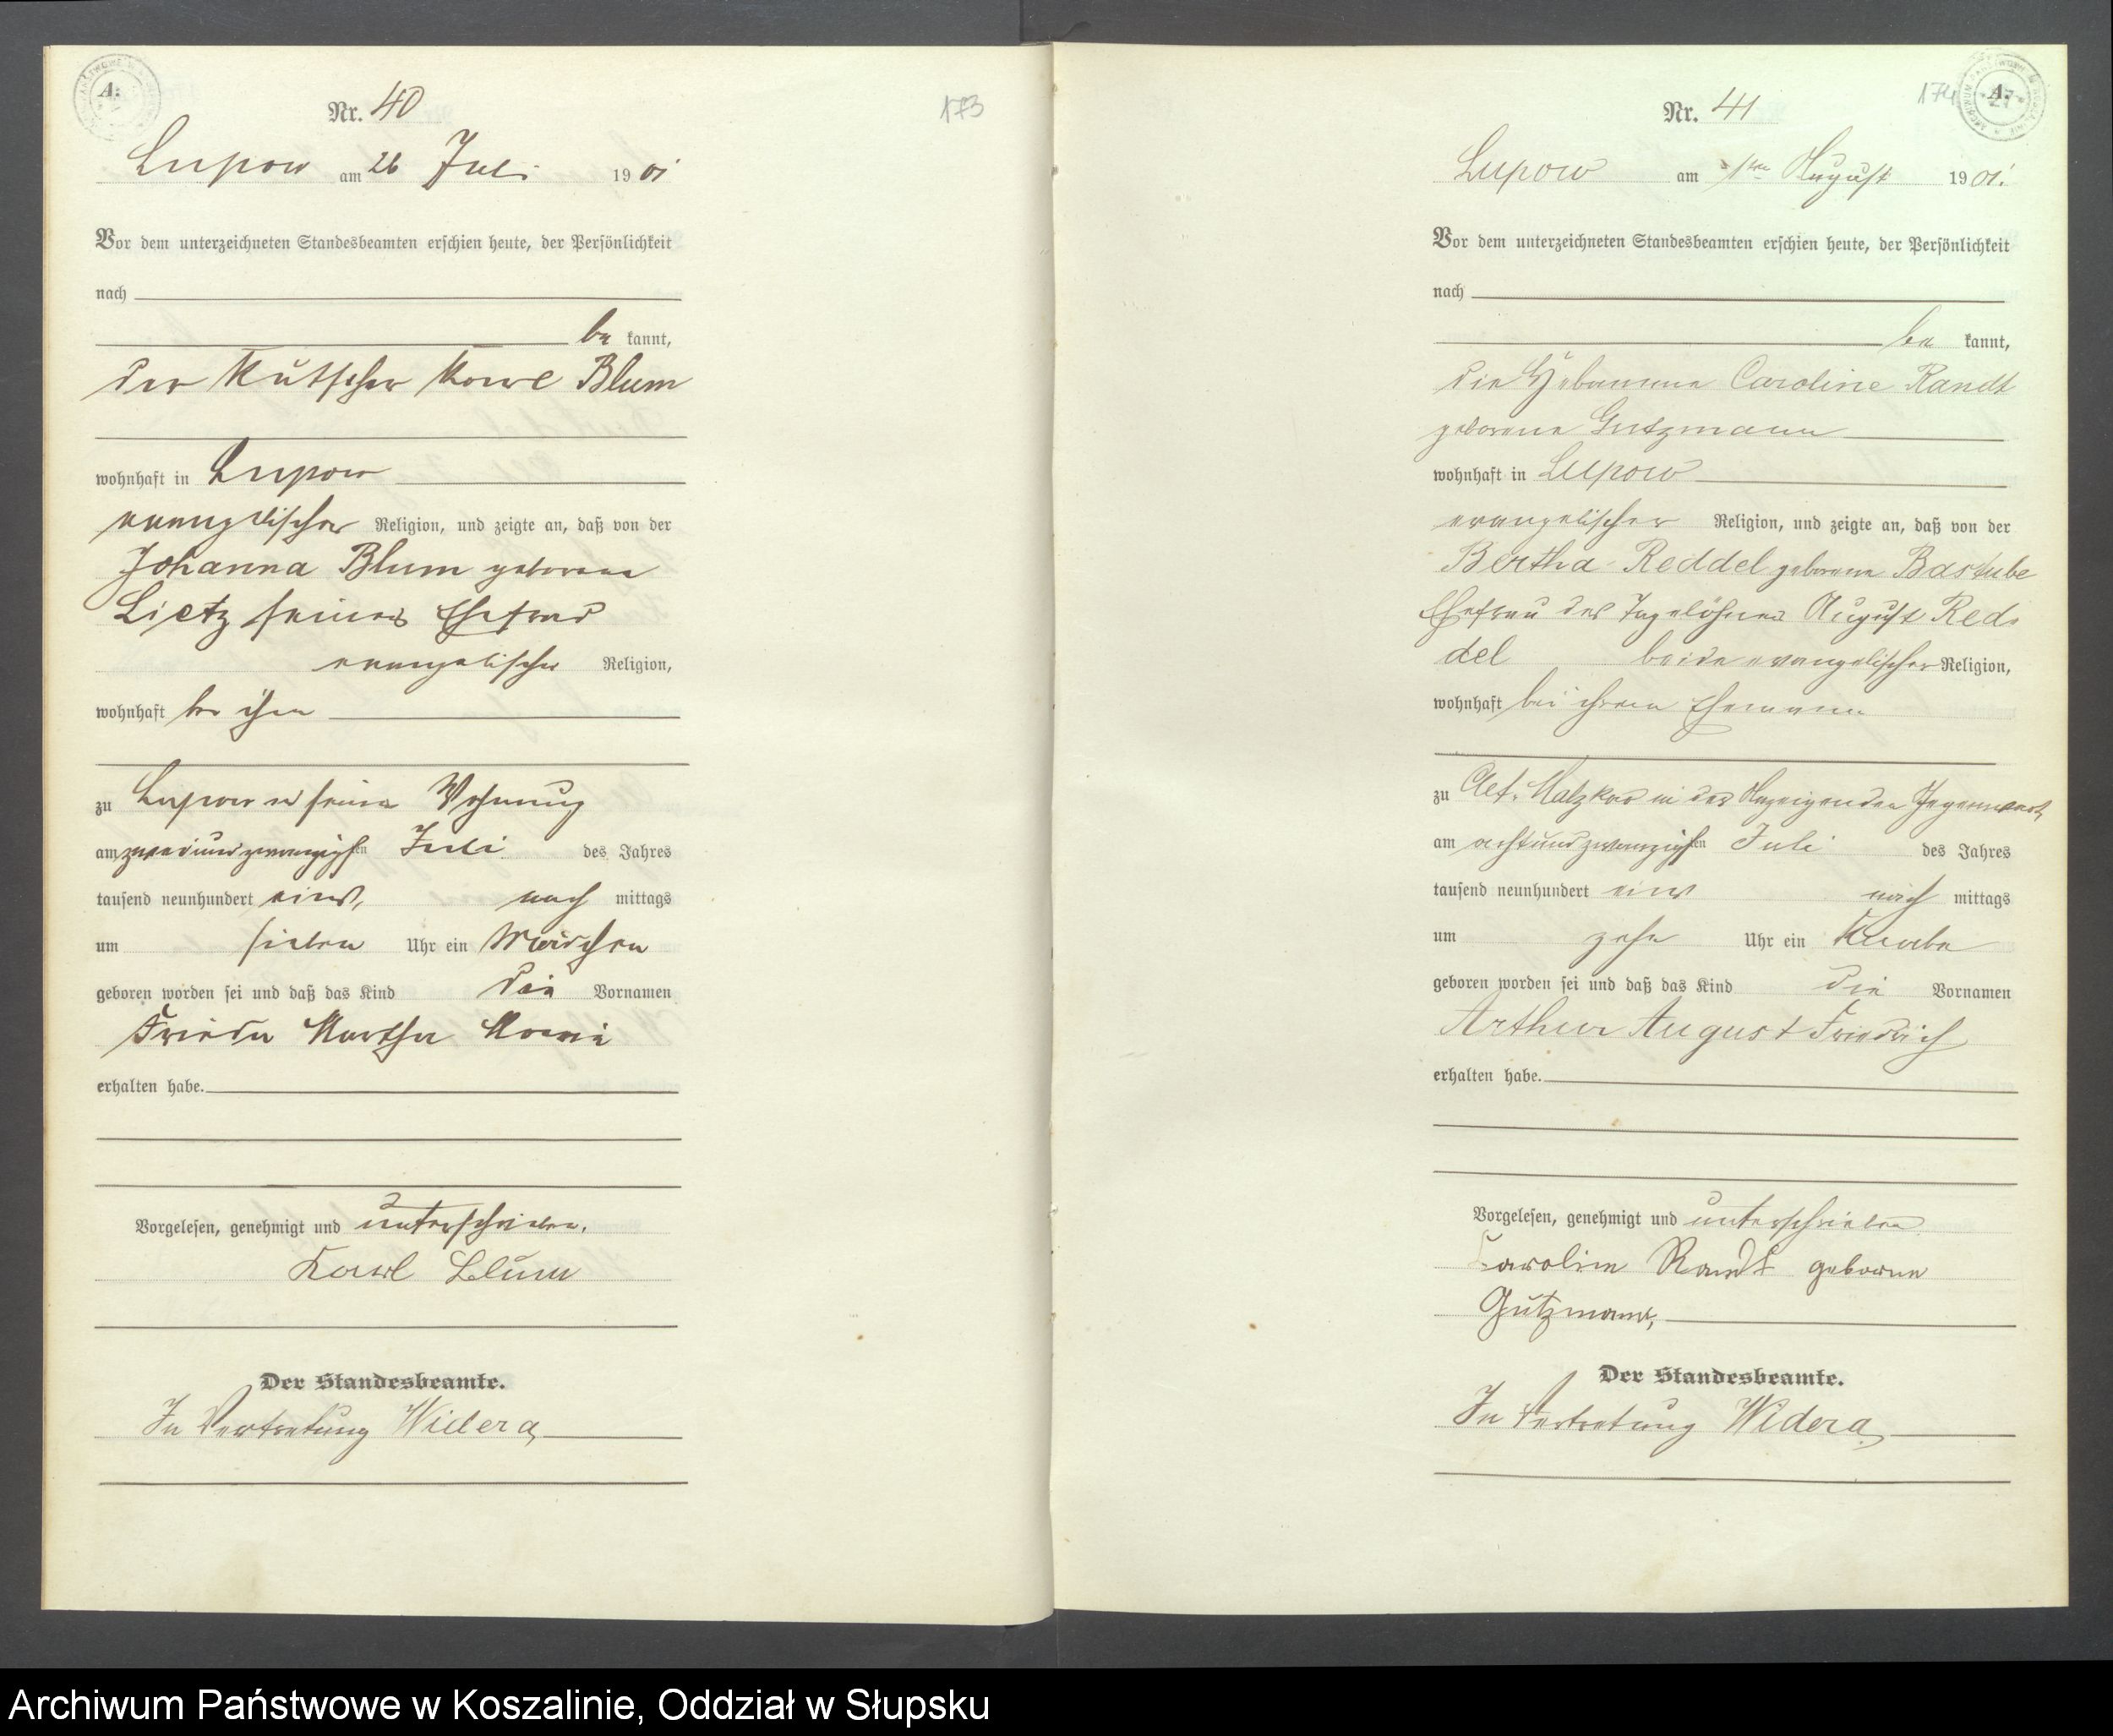 Nr. 40
173
Lupow am 26 Juli 1901
Vor dem unterzeichneten Standesbeamten erschien heute, der Persönlichkeit
nach
be kannt,
der Kutscher Karl Blum
wohnhaft in Lupow
evangelischer Religion, und zeigte an, daß von der
Johanna Blum geborene
Lietz seiner Ehefrau
evangelischer Religion,
wohnhaft bei ihm
zu Lupow in seiner Wohnung
am zweiundzwanzigsten Juli des Jahres
tausend neunhundert eins, nach mittags
um sieben Uhr ein Mädchen
geboren worden sei und daß das Kind die Vornamen
Frieda Martha Marie
erhalten habe.
Vorgelesen, genehmigt und unterschrieben.
Karl Blum
Der Standesbeamte.
In Vertretung Widera
174
Nr. 41
Lupow am 1ten August 1901.
Vor dem unterzeichneten Standesbeamten erschien heute, der Persönlichkeit
nach
be kannt,
die Hebamme Caroline Randt
geborene Gutzmann
wohnhaft in Lupow
evangelischer Religion, und zeigte an, daß von der
Bertha Reddel geborene Bastube
Ehefrau des Tagelöhners August Red-
del beide evangelischer Religion,
wohnhaft bei ihrem Ehemann
zu Alt. Malzkow in der Anzeigenden Gegenwart
am achtundzwanzigsten Juli des Jahres
tausend neunhundert eins nach mittags
um zehn Uhr ein Knabe
geboren worden sei und daß das Kind die Vornamen
Arthur August Friedrich
erhalten habe.
Vorgelesen, genehmigt und unterschrieben
Karoline Randt geborne
Gutzmann,
Der Standesbeamte.
In Vertretung Widera
Archiwum Państwowe w Koszalinie, Oddział w Słupsku